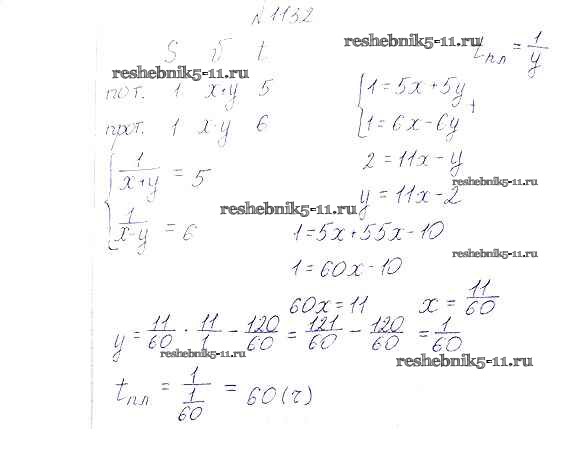 №1132
S υ t
t пл = 1/y
reshebnik5-11.ru
reshebnik5-11.ru
пот. 1 x+y 5
прот. 1 x-y 6
{ 1/(x+y) = 5
{ 1/(x-y) = 6
{ 1=5x+5y +
{ 1=6x-6y
2=11x-y
reshebnik5-11.ru
y=11x-2
reshebnik5-11.ru
1=5x+55x-10
reshebnik5-11.ru
1=60x-10
60x=11 x=11/60
y=11/60 · 11/1 - 120/60 = 121/60 - 120/60 = 1/60
reshebnik5-11.ru
reshebnik5-11.ru
t пл = 1/(1/60) = 60 (ч)